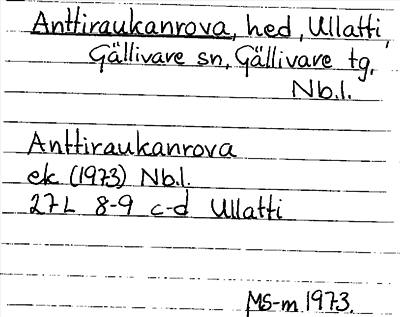 Anttiraukanrova, hed, Ullatti,
Gällivare sn, Gällivare tg,
Nb.l.
Anttiraukanrova
ek (1973) Nb.l.
27L 8-9 c-d Ullatti
MS-m 1973.